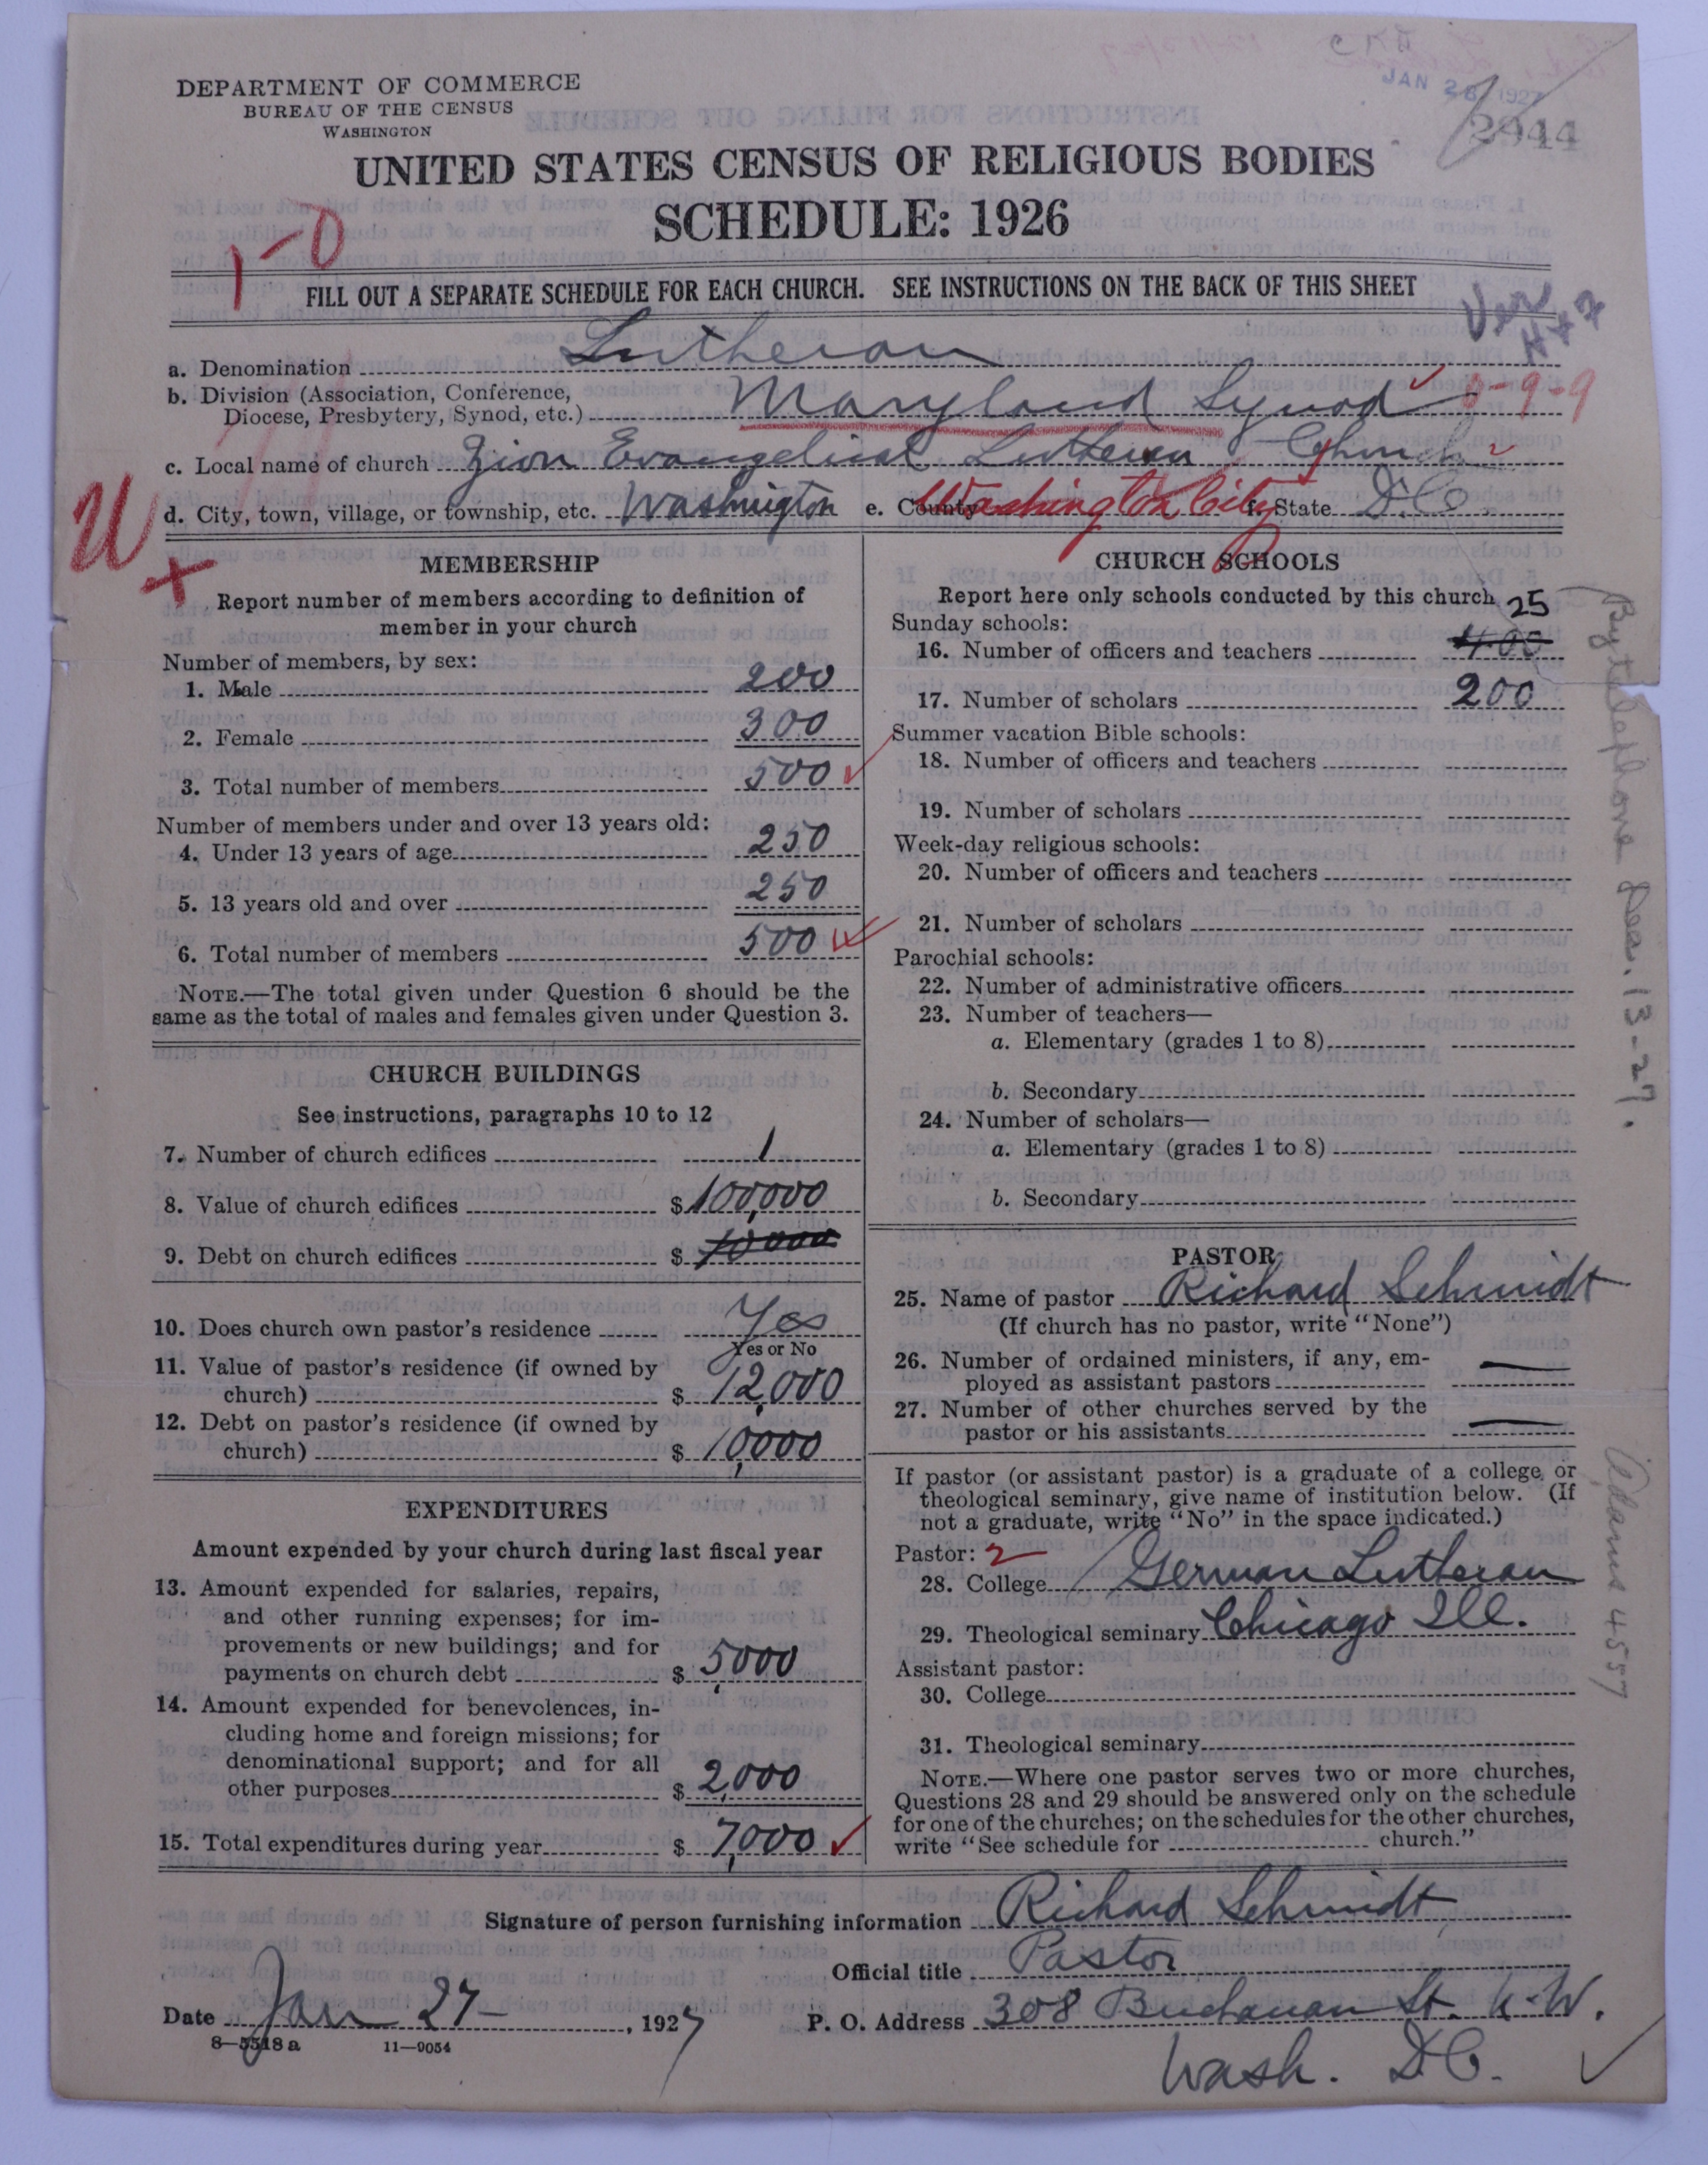 JAN 28 1927
2944
DEPARTMENT OF COMMERCE
BUREAU OF THE CENSUS
WASHINGTON
UNITED STATES CENSUS OF RELIGIOUS BODIES
SCHEDULE: 1926
1-0
FILL OUT A SEPARATE SCHEDULE FOR EACH CHURCH. SEE INSTRUCTIONS ON THE BACK OF THIS SHEET
a. Denomination Lutheran
b. Division (Association, Conference,
Diocese, Presbytery, Synod, etc.) Maryland Synod 0-9-9
c. Local name of church Zion Evangelical Lutheran Church
d. City, town, village, or township, etc. Washington e. County Washington City f. State D.C.
W
MEMBERSHIP
Report number of members according to definition of
member in your church
Number of members, by sex:
1. Male 200
2. Female 300
3. Total number of members 500
Number of members under and over 13 years old:
4. Under 13 years of age 250
5. 13 years old and over 250
6. Total number of members 500
NOTE.—The total given under Question 6 should be the
same as the total of males and females given under Question 3.
CHURCH BUILDINGS
See instructions, paragraphs 10 to 12
7. Number of church edifices 1
8. Value of church edifices $ 100,000
9. Debt on church edifices $ 10000
10. Does church own pastor's residence Yes
Yes or No
11. Value of pastor's residence (if owned by
church) $ 12,000
12. Debt on pastor's residence (if owned by
church) $ 10,000
EXPENDITURES
Amount expended by your church during last fiscal year
13. Amount expended for salaries, repairs,
and other running expenses; for im-
provements or new buildings; and for
payments on church debt $ 5,000
14. Amount expended for benevolences, in-
cluding home and foreign missions; for
denominational support; and for all
other purposes $ 2,000
15. Total expenditures during year $ 7,000
CHURCH SCHOOLS
Report here only schools conducted by this church
Sunday schools: 25
16. Number of officers and teachers 400
17. Number of scholars 200
Summer vacation Bible schools:
18. Number of officers and teachers
19. Number of scholars
Week-day religious schools:
20. Number of officers and teachers
21. Number of scholars
Parochial schools:
22. Number of administrative officers
23. Number of teachers—
a. Elementary (grades 1 to 8)
b. Secondary
24. Number of scholars—
a. Elementary (grades 1 to 8)
b. Secondary
PASTOR
25. Name of pastor Richard Schmidt
(If church has no pastor, write "None")
26. Number of ordained ministers, if any, em-
ployed as assistant pastors —
27. Number of other churches served by the
pastor or his assistants —
If pastor (or assistant pastor) is a graduate of a college or
theological seminary, give name of institution below. (If
not a graduate, write "No" in the space indicated.)
Pastor: 2
28. College German Lutheran
29. Theological seminary Chicago Ill.
Assistant pastor:
30. College
31. Theological seminary
NOTE.—Where one pastor serves two or more churches,
Questions 28 and 29 should be answered only on the schedule
for one of the churches; on the schedules for the other churches,
write "See schedule for church."
By telephone Dec. 13-27.
Adams 4557
Signature of person furnishing information Richard Schmidt
Official title Pastor
Date Jan 27 , 1927
P. O. Address 308 Buchanan St. N.W.
Wash. D.C.
8—5518a 11—9054